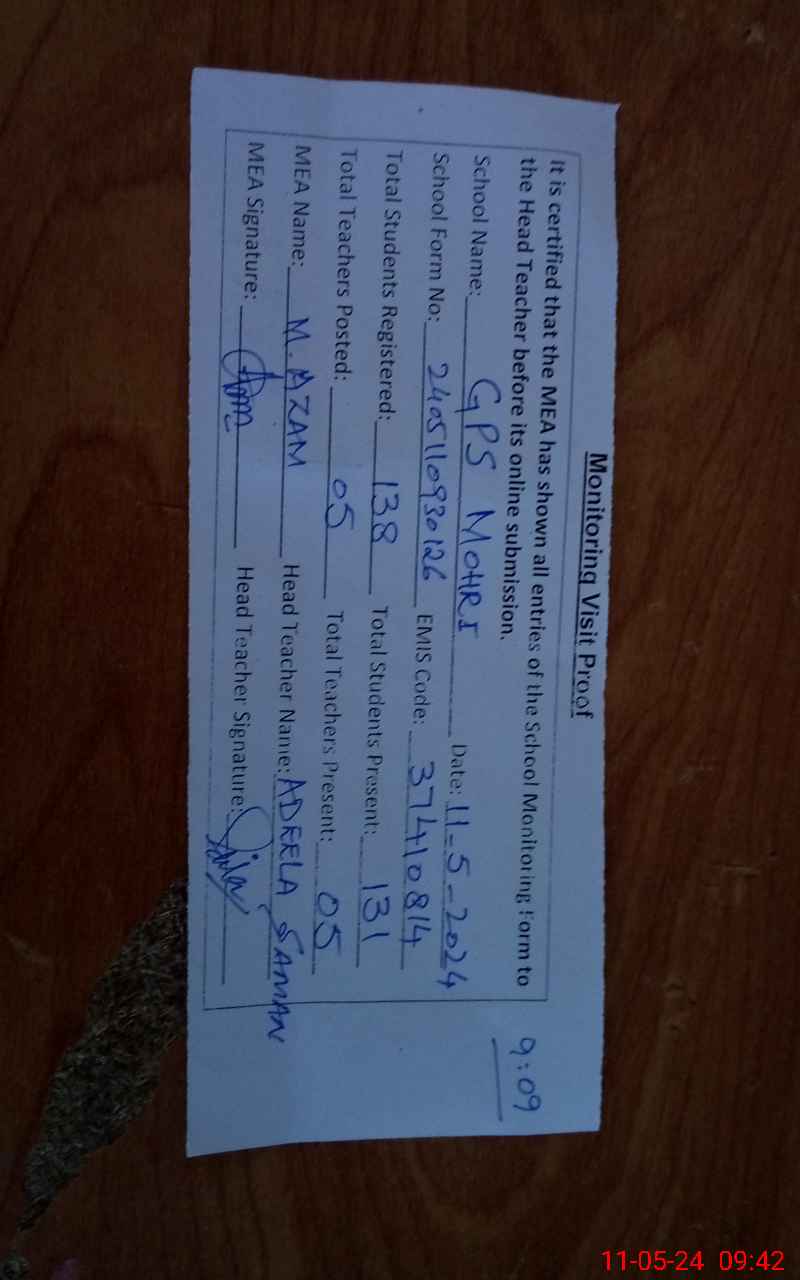 Monitoring Visit Proof
9:09
It is certified that the MEA has shown all entries of the School Monitoring Form to
the Head Teacher before its online submission.
School Name: GPS MOHRI Date: 11-5-2024
School Form No: 2405110930126 EMIS Code: 37410814
Total Students Registered: 138 Total Students Present: 131
Total Teachers Posted: 05 Total Teachers Present: 05
MEA Name: M. AZAM Head Teacher Name: ADEELA SAMAN
MEA Signature: Head Teacher Signature:
11-05-24 09:42